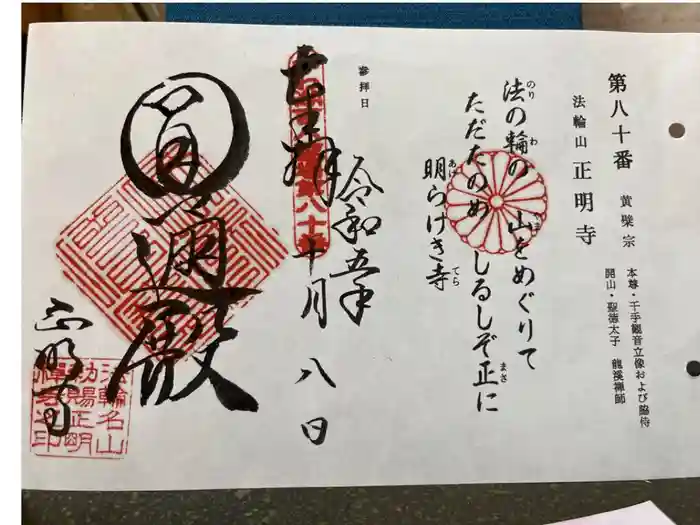 第八十番　黄檗宗　本尊・千手観音立像および脇侍
法輪山　正明寺　開山・聖徳太子　龍溪禅師
法の輪の　山をめぐりて
ただたのめ　しるしぞ正に
明らけき寺
参拝日
令和五年
十月八日
奉拝
圓通殿
正明寺
法輪名山
勅賜正明
禅寺之印